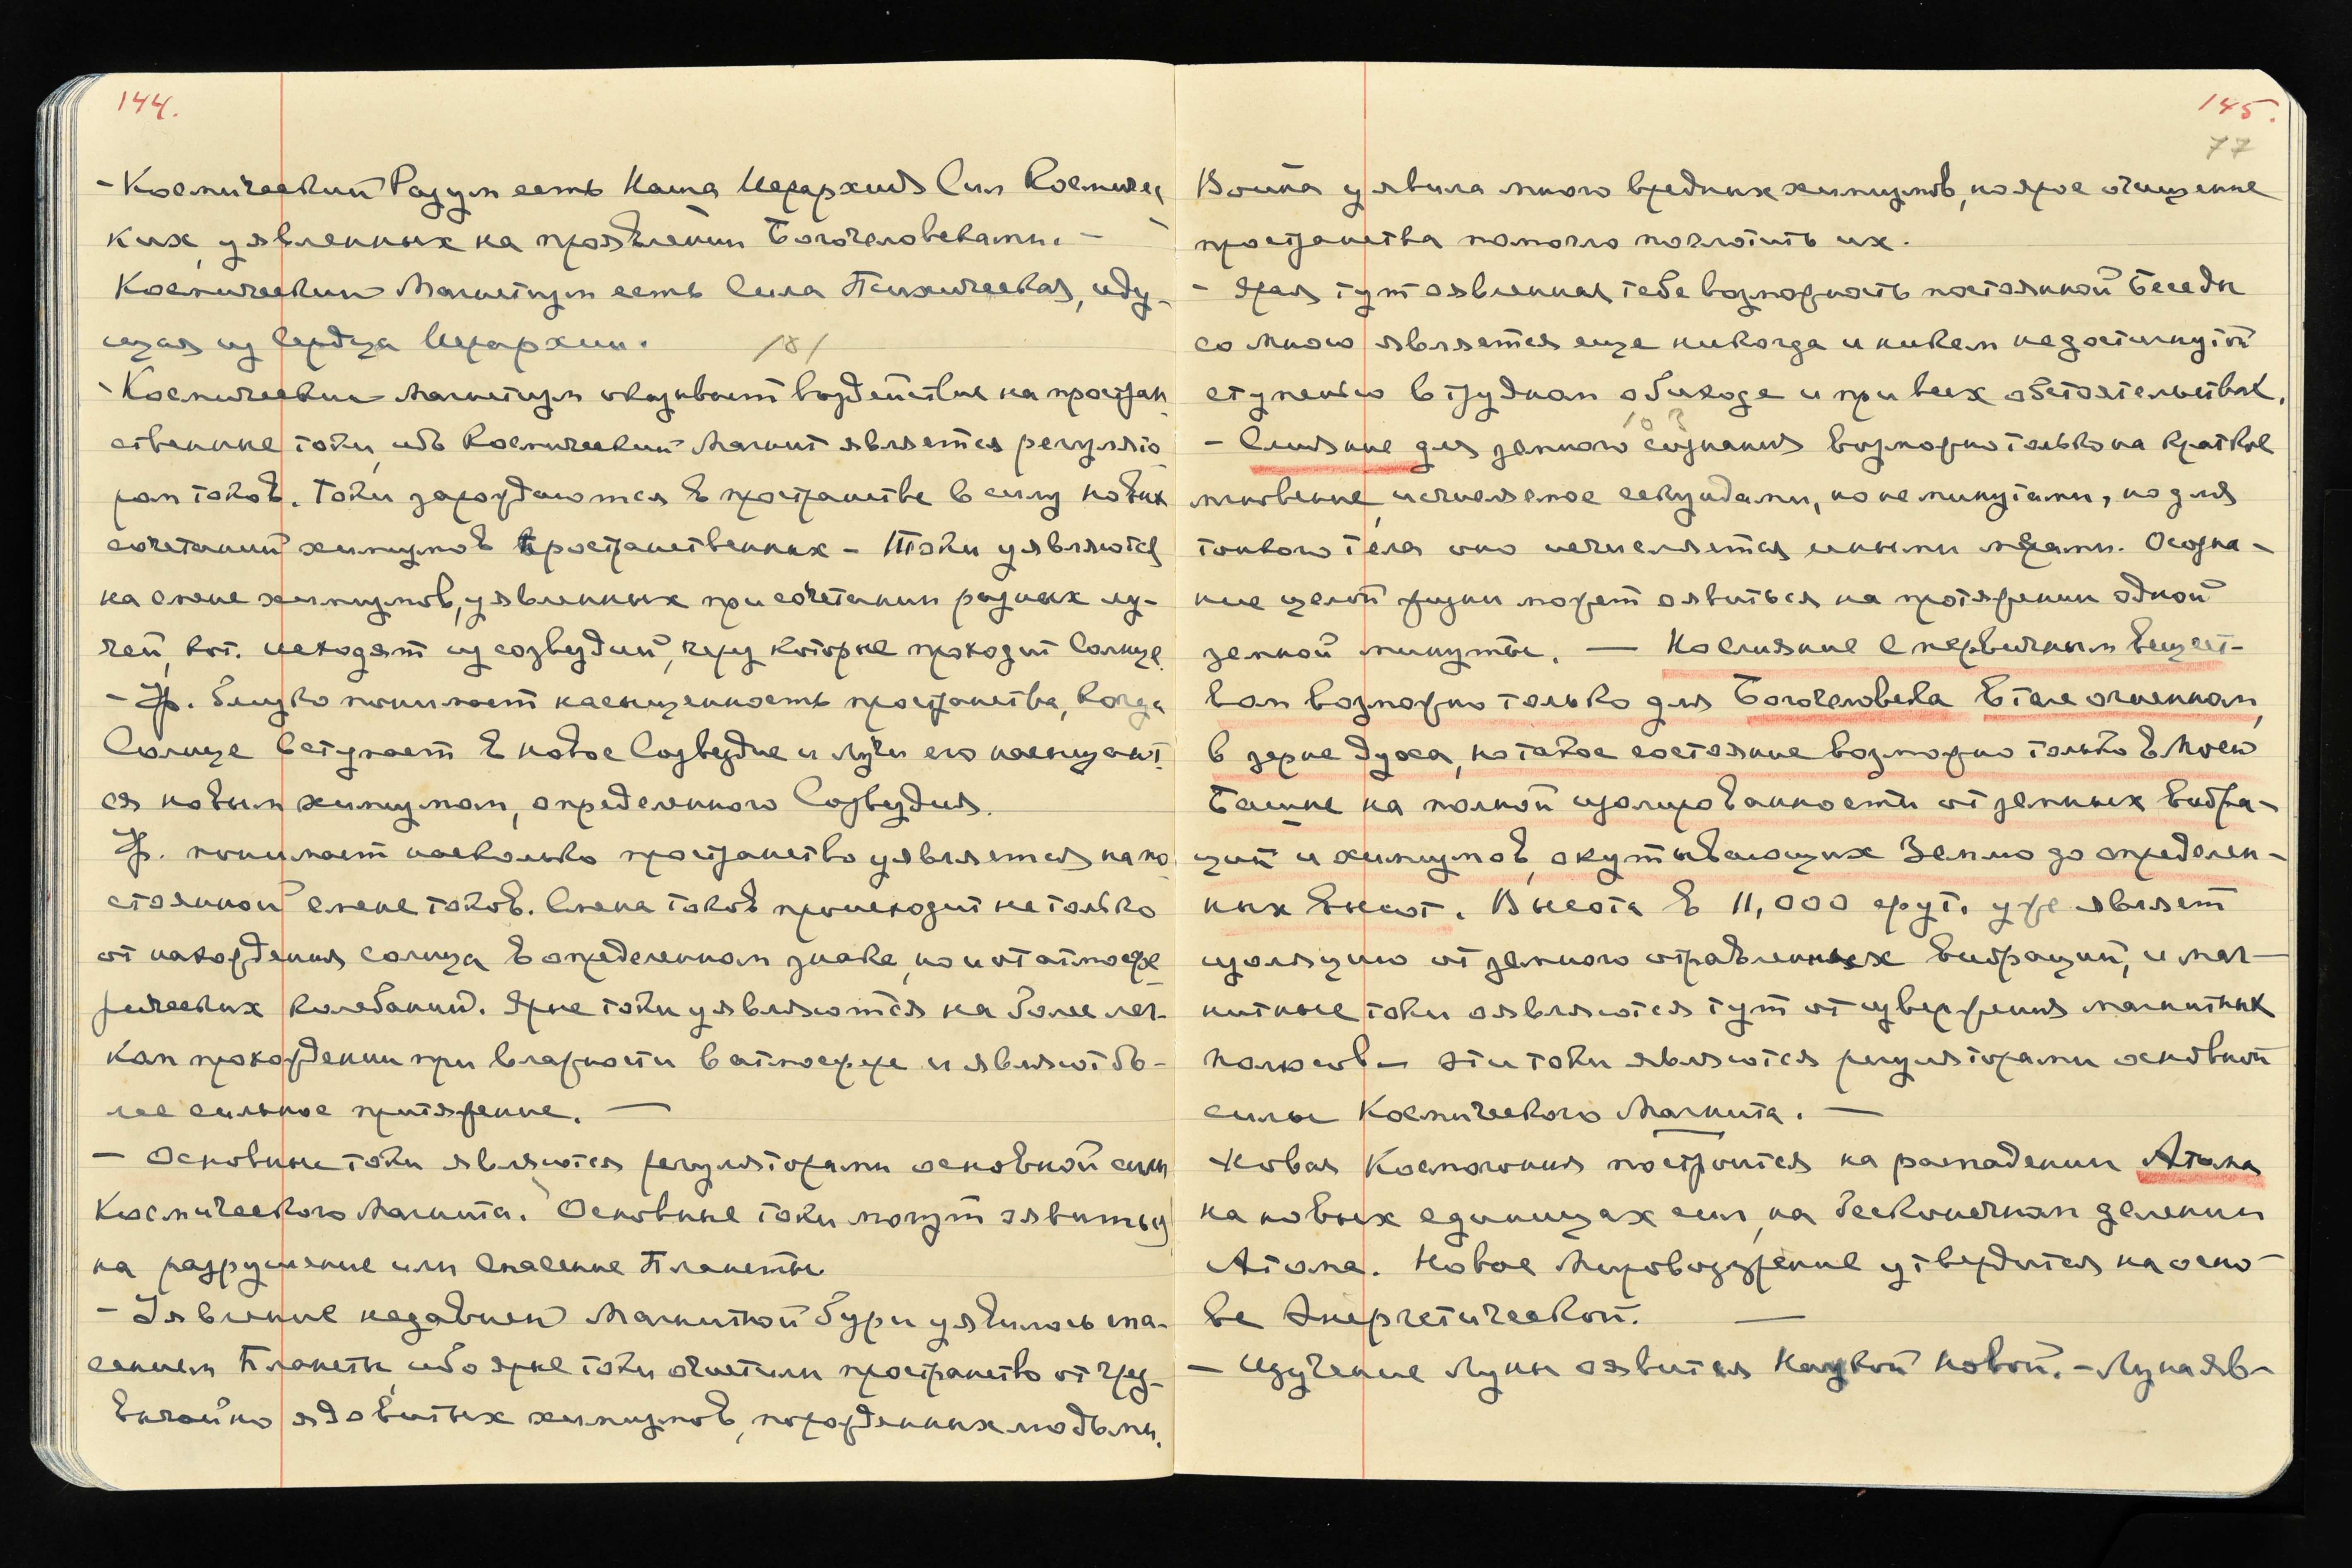 144.
- Космический Разум есть Наша Иерархия Сил Космичес
ких, уявленных на проявлении Богочеловеками. -
Космический Магнетизм есть Сила Психическая, иду-
щая из Сердца Иерархии. 181
- Космический магнетизм оказывает воздействие на простран
ственные токи, ибо Космический Магнит является регулято
ром токов. Токи зарождаются в пространстве в силу новых
сочетаний химизмов пространственных - Токи уявляются
на смене химизмов, уявленных при сочетании разных лу-
чей, кот. исходят из созвездий, через которые проходит Солнце.
- Ур. близко понимает насыщенность пространства, когда
Солнце вступает в новое Созвездие и лучи его насыщают
ся новым химизмом, определенного Созвездия.
Ур. понимает насколько пространство уявляется на по
стоянной смене токов. Смена токов происходит не только
от нахождения солнца в определенном знаке, но и от атмосфе
рических колебаний. Ярые токи уявляются на более лег-
ком прохождении при влажности в атмосфере и являют бо-
лее сильное притяжение. —
- Основные токи являются регуляторами основной силы
Космического Магнита. Основные токи могут явиться
на разрушение или спасение Планеты
- Уявление недавней Магнитной бури уявилось спа-
сением Планеты, ибо ярые токи очистили пространство от чрез-
вычайно ядовитых химизмов, порожденных людьми.
145.
77
Война уявила много вредных химизмов, но ярое очищение
пространства помогло поглотить их.
- Ярая тут оявленная тебе возможность постоянной Беседы
со Мною является еще никогда и никем недостигнутой
ступенью в трудном обиходе и при всех обстоятельствах.
- Слияние для земного сознания возможно только на краткое
мгновение, исчисляемое секундами, но не минутами, но для
тонкого тела оно исчисляется иными мерами. Осозна-
ние целой жизни может оявиться на протяжении одной
земной минуты. — Но слияние с первичным вещест-
вом возможно только для Богочеловека в теле огненном,
в зерне духа, но такое состояние возможно только в Моей
Башне на полной изолированности от земных вибра-
ций и химизмов, окутывающих Землю до определен-
ных высот. Высота в 11,000 фут. уже являет
изоляцию от земного отравленных вибраций, и маг-
нитные токи оявляются тут от извержения магнитных
полюсов — эти токи являются регуляторами основной
силы Космического Магнита. —
Новая Космогония построится на распадении Атома
на новых единицах сил, на бесконечном делении
Атома. Новое Мировоззрение утвердится на осно-
ве Энергетической. —
- Изучение Луны оявится Наукой новой. - Луна яв-